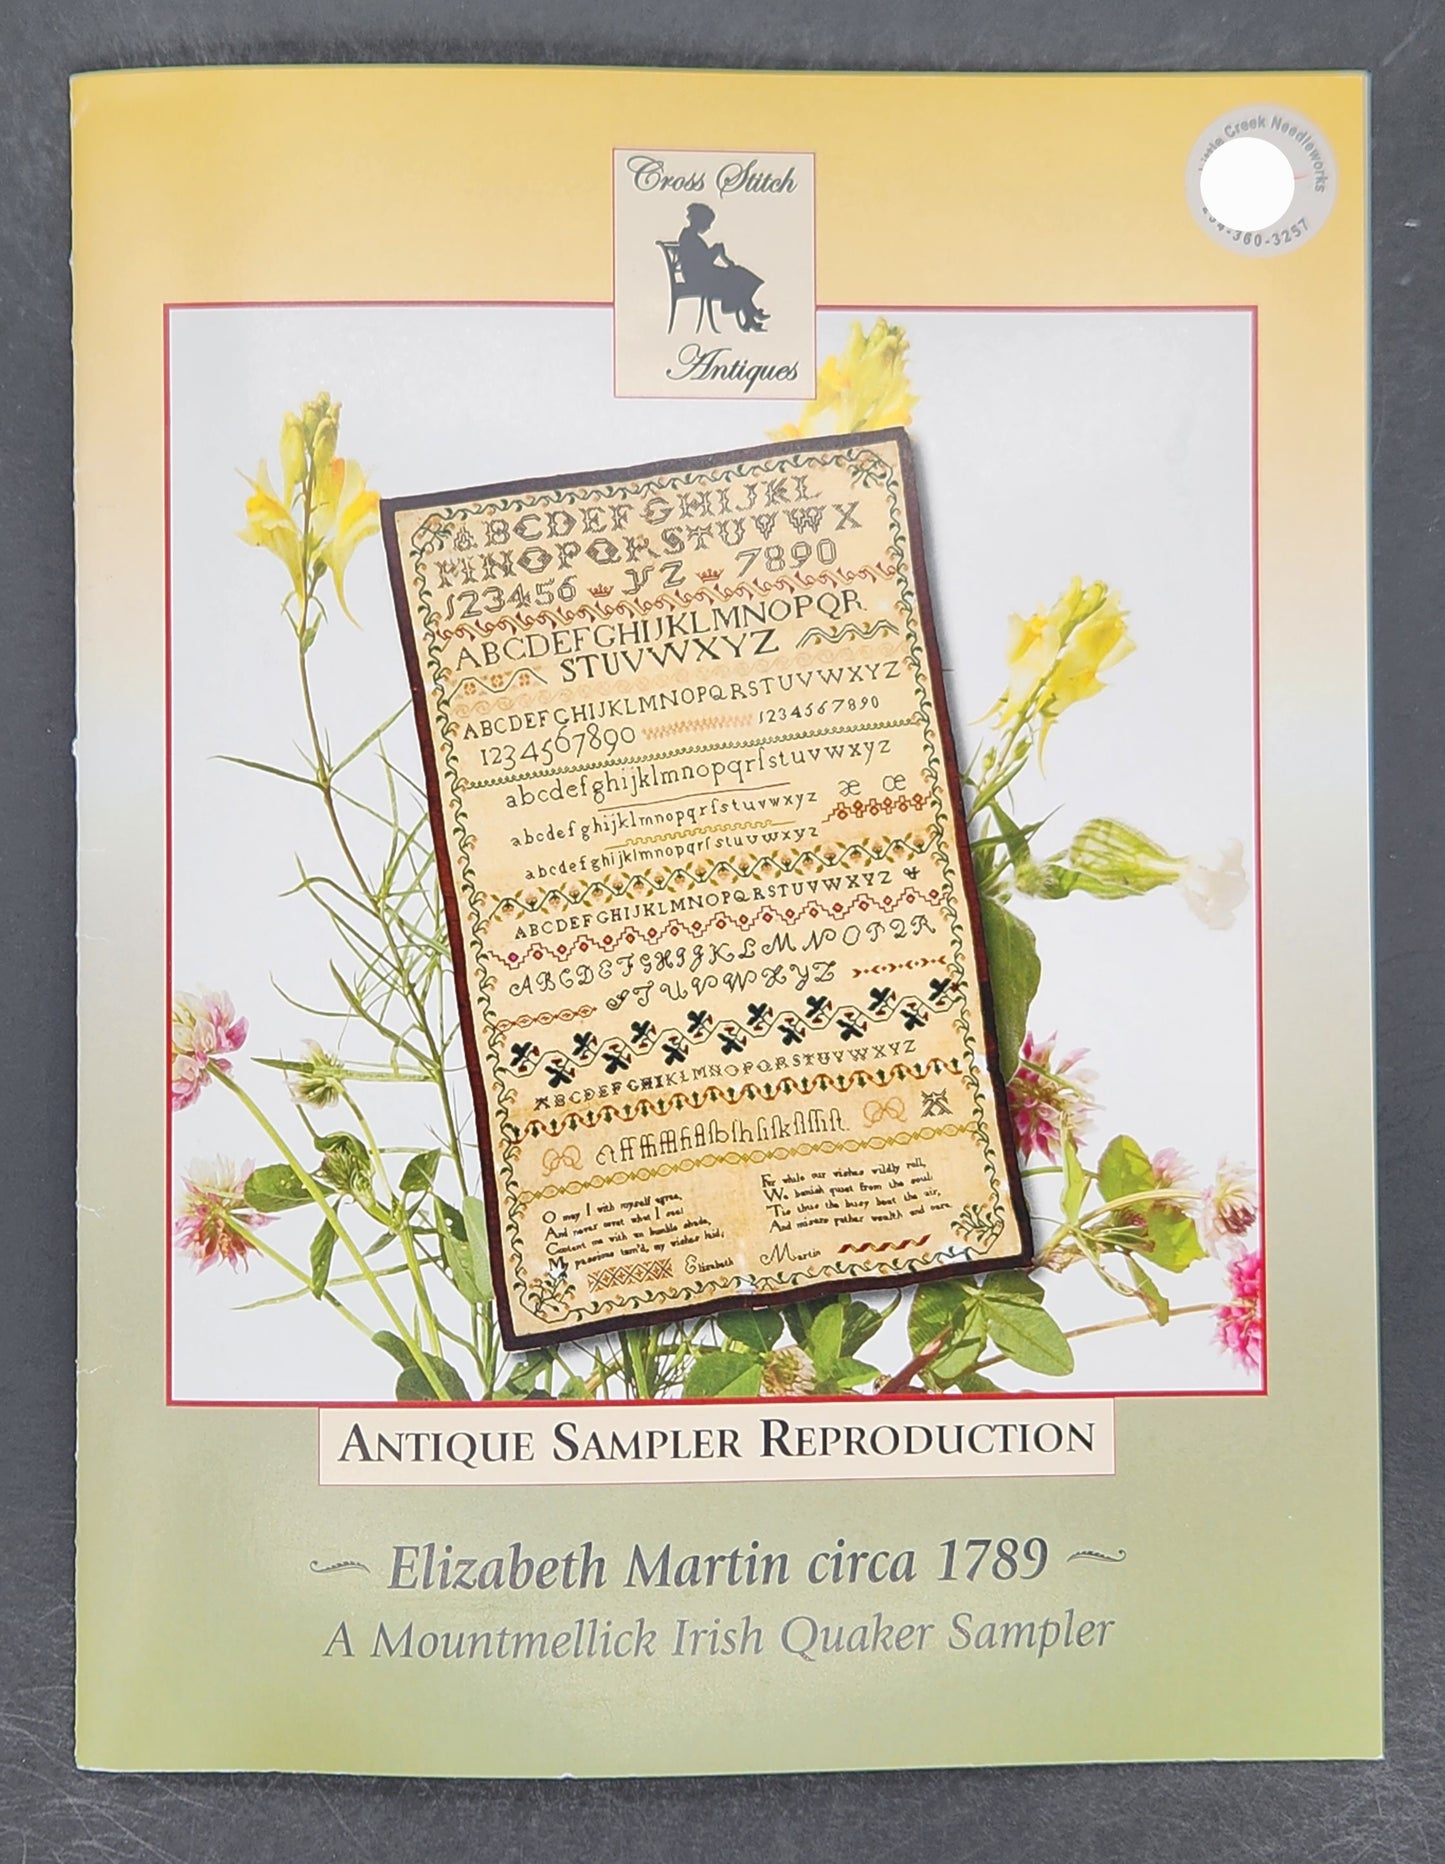 Cross Stitch
Antiques
Creek Needleworks
-360-3257
ABCDEFGHIJKL
NOPQRSTUVWX
123456 YZ 7890
ABCDEFGHIJKLMNOPQR
STUVWXYZ
ABCDEFGHIJKLMNOPQRSTUVWXYZ
1234567890 1234567890
abcdefghijklmnopqrſstuvwxyz
abcdefghijklmnopqrſstuvwxyz æ œ
abcdefghijklmnopqrſstuvwxyz
ABCDEFGHIJKLMNOPQRSTUVWXYZ &
ABCDEFGHIJKLMNOPQR
STUVWXYZ
ABCDEFGHIKLMNOPQRSTUVWXYZ
O may I with myself agree,
And never covet what I see:
Content me with an humble shade,
My passions tam'd, my wishes laid;
For while our wishes wildly roll,
We banish quiet from the soul:
Tis thus the busy beat the air,
And misers gather wealth and care.
Elizabeth Martin
ANTIQUE SAMPLER REPRODUCTION
Elizabeth Martin circa 1789
A Mountmellick Irish Quaker Sampler